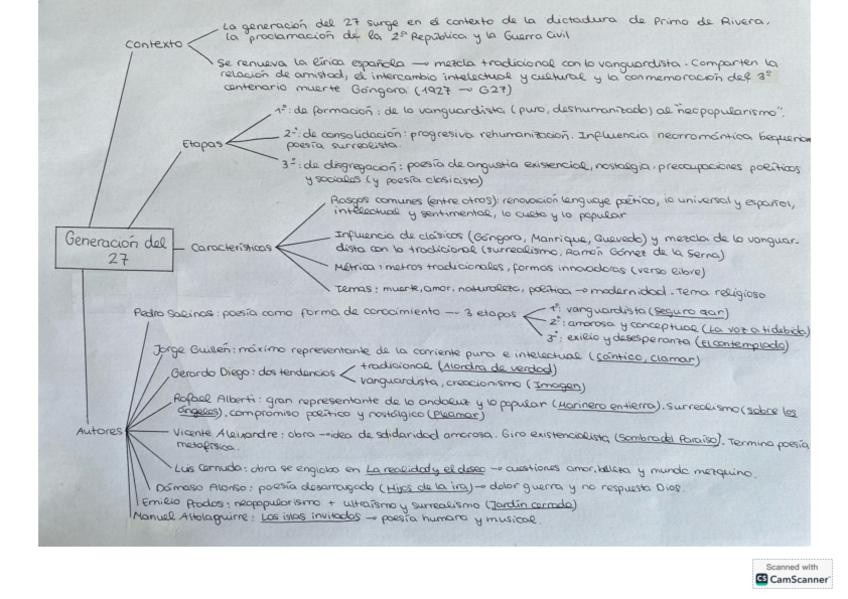 La generación del 27 surge en el contexto de la dictadura de Primo de Rivera,
la proclamación de la 2ª República y la Guerra Civil
Contexto
Se renueva la lírica española → mezcla tradicional con lo vanguardista. Comparten la
relación de amistad, el intercambio intelectual y cultural y la conmemoración del 3º
centenario muerte Góngora (1927 → G27)
1ª: de formación: de lo vanguardista (puro, deshumanizado) al "neopopularismo".
Etapas
2ª: de consolidación: progresiva rehumanización. Influencia neorromántica becqueriana
poesía surrealista.
3ª: de disgregación: poesía de angustia existencial, nostalgia, preocupaciones políticas
y sociales (y poesía clasicista)
Generación del
27
Características
Rasgos comunes (entre otros): renovación lenguaje poético, lo universal y español,
intelectual y sentimental, lo culto y lo popular
Influencia de clásicos (Góngora, Manrique, Quevedo) y mezcla de lo vanguar-
dista con lo tradicional (surrealismo, Ramón Gómez de la Serna)
Métrica: metros tradicionales, formas innovadoras (verso libre)
Temas: muerte, amor, naturaleza, política → modernidad. Tema religioso
Autores
Pedro Salinas: poesía como forma de conocimiento → 3 etapas
1ª: vanguardista (Seguro azar)
2ª: amorosa y conceptual (La voz a ti debida)
3ª: exilio y desesperanza (El contemplado)
Jorge Guillén: máximo representante de la corriente pura e intelectual (Cántico, Clamar)
Gerardo Diego: dos tendencias
tradicional (Alondra de verdad)
vanguardista, creacionismo (Imagen)
Rafael Alberti: gran representante de lo andaluz y lo popular (Marinero en tierra), surrealismo (sobre los
ángeles), compromiso político y nostálgico (Pleamar)
Vicente Aleixandre: obra → idea de solidaridad amorosa. Giro existencialista (Sombra del Paraíso). Termina poesía
metafísica.
Luis Cernuda: obra se engloba en La realidad y el deseo → cuestiones amor, belleza y mundo mezquino.
Dámaso Alonso: poesía desarraigada (Hijos de la ira) → dolor guerra y no respuesta Dios.
Emilio Prados: neopopularismo + ultraísmo y surrealismo (Jardín cerrado)
Manuel Altolaguirre: Las islas invitadas → poesía humana y musical.
Scanned with
CS CamScanner